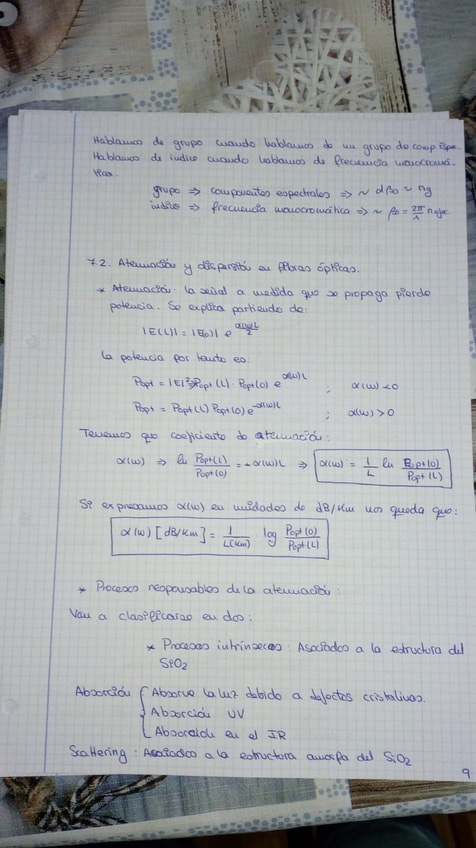 Hablamos de grupo cuando hablamos de un grupo de comp. Espe.
Hablamos de indice cuando hablamos de frecuencia monocromá-
tica.
grupo => componentes espectrales => ~ dβ₀ ~ ng
indice => frecuencia monocromática => ~ β₀ = 2π/λ
7.2. Atenuación y dispersión en fibras ópticas.
* Atenuación: la señal a medida que se propaga pierde
potencia. Se explica partiendo de:
|E(L)| = |E(0)| e^(α(ω)L/2)
La potencia por tanto es:
Popt = |E|² => Popt(L) · Popt(0) e^(α(ω)L) ; α(ω) < 0
Popt = Popt(L) Popt(0) e^(-α(ω)L) ; α(ω) > 0
Tenemos que coeficiente de atenuación:
α(ω) => ln Popt(L)/Popt(0) = -α(ω)L => α(ω) = 1/L ln Popt(0)/Popt(L)
Si expresamos α(ω) en unidades de dB/Km nos queda que:
α(ω) [dB/Km] = 1/L(Km) log Popt(0)/Popt(L)
* Procesos responsables de la atenuación:
Van a clasificarse en dos:
* Procesos intrínsecos: Asociados a la estructura del
SiO2
Absorción { Absorve la luz debido a defectos cristalinos.
Absorción UV
Absorción en el IR
Scattering: Asociados a la estructura amorfa del SiO2
9